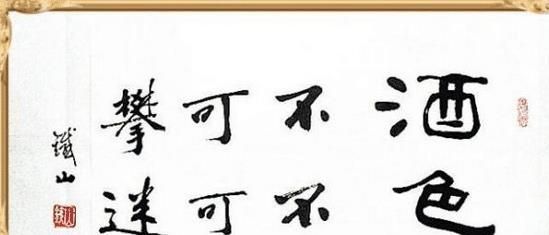 酒不可攀
色不可迷
鐵山